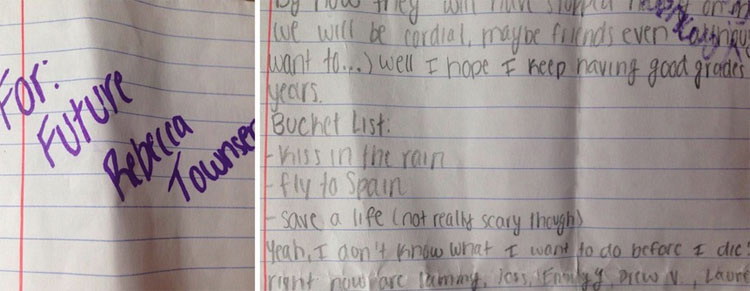 For:
Future
Rebecca
Townsen
By now they will have stopped
(we will be cordial, maybe friends even
want to...) well I hope I keep having good grades
years.
Bucket List:
- Kiss in the rain
- fly to Spain
- save a life (not really scary though)
Yeah, I don't know what I want to do before I die
right now are Tammy, Joss, Drew V.,